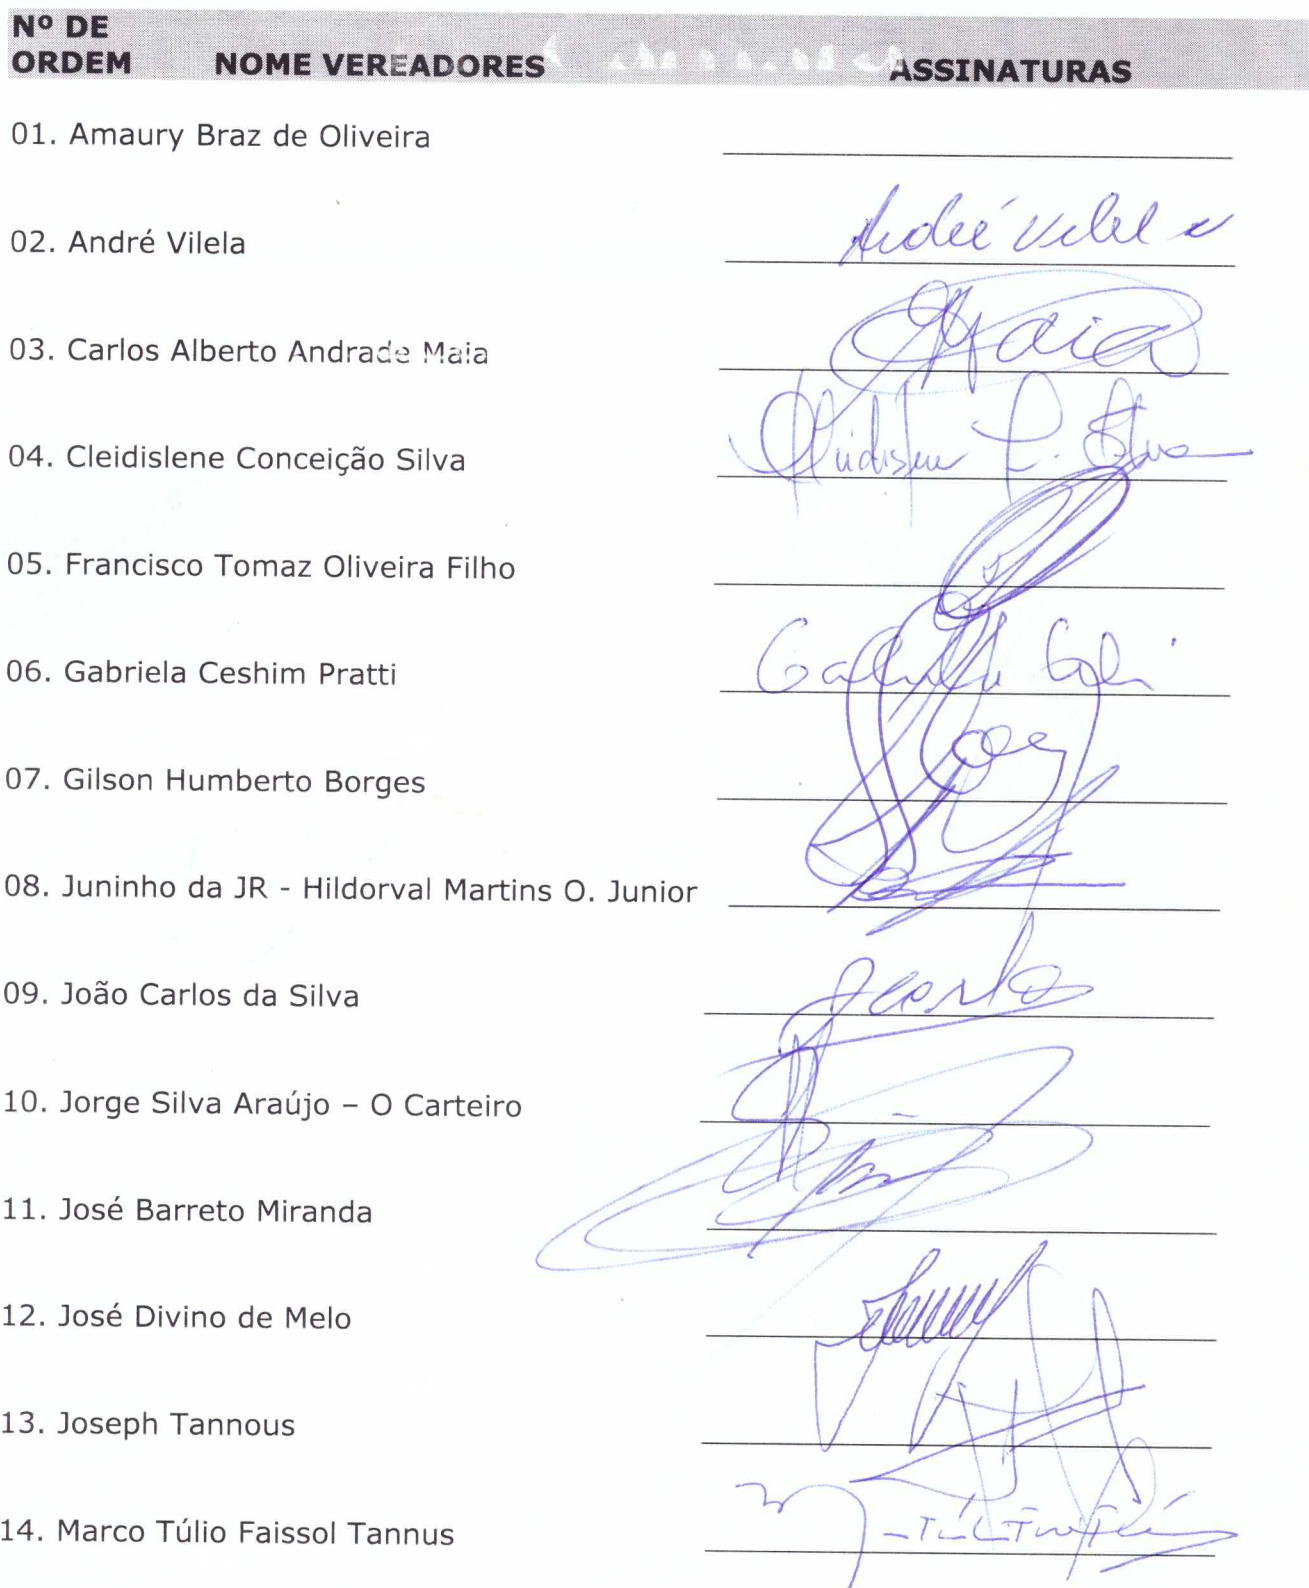 Nº DE
ORDEM NOME VEREADORES ASSINATURAS
01. Amaury Braz de Oliveira
02. André Vilela André Vilela
03. Carlos Alberto Andrade Maia Maia
04. Cleidislene Conceição Silva Cleidislene C. Silva
05. Francisco Tomaz Oliveira Filho
06. Gabriela Ceshim Pratti
07. Gilson Humberto Borges
08. Juninho da JR - Hildorval Martins O. Junior
09. João Carlos da Silva
10. Jorge Silva Araújo – O Carteiro
11. José Barreto Miranda
12. José Divino de Melo
13. Joseph Tannous
14. Marco Túlio Faissol Tannus